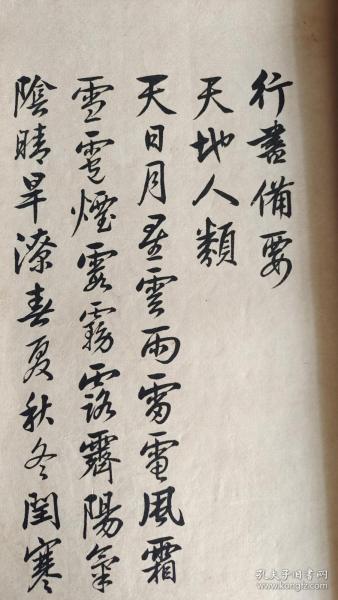 行書備要
天地人類
天日月星雲雨雷電風霜
雪雹煙霞霧露霽陽氣
陰晴旱潦春夏秋冬閏寒
孔夫子旧书网
www.kongfz.com